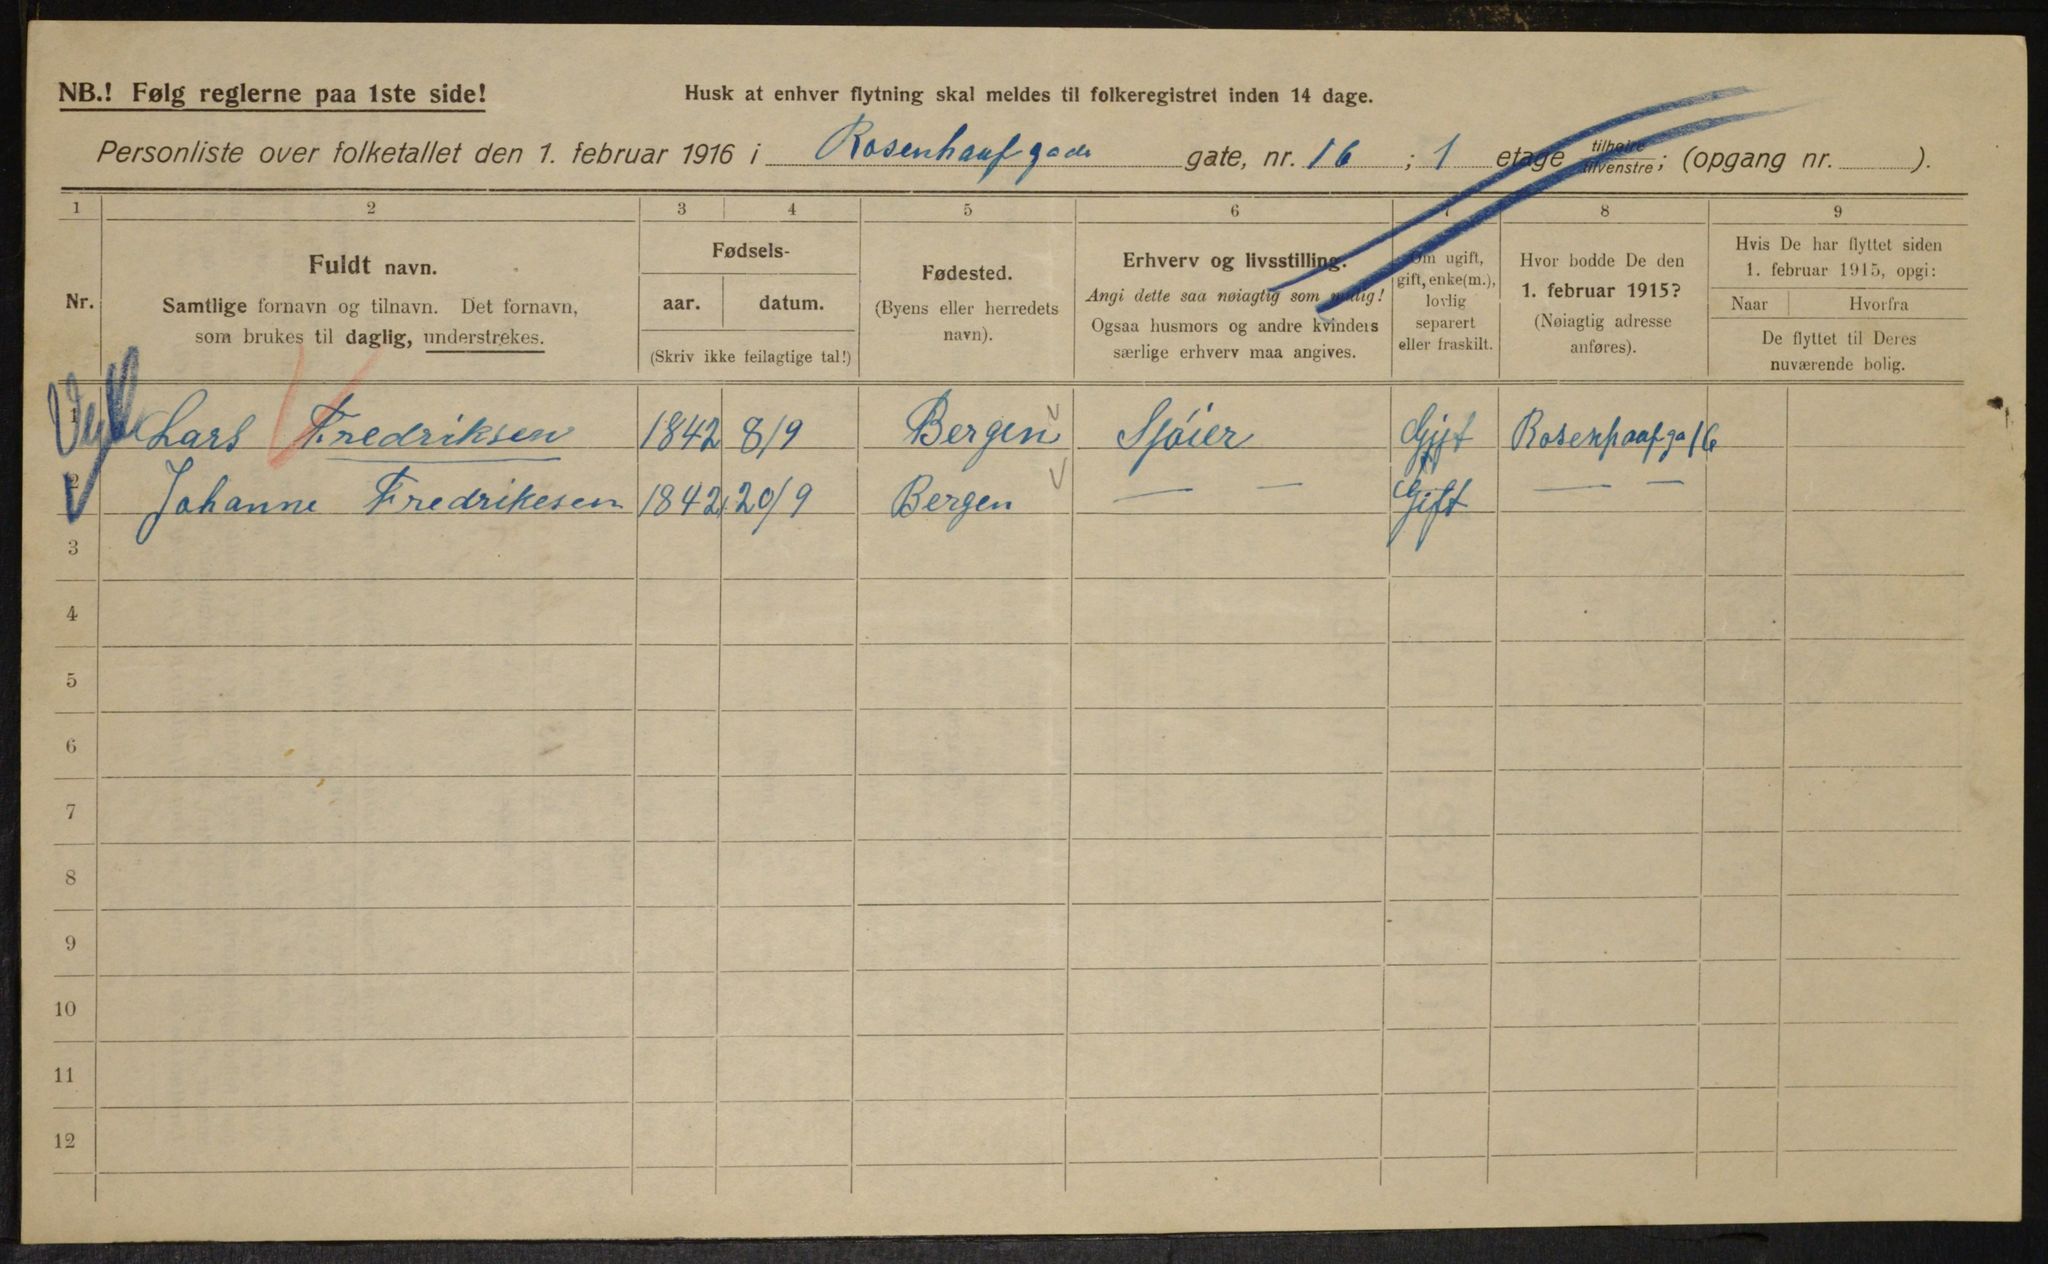 NB.! Følg reglerne paa 1ste side!
Husk at enhver flytning skal meldes til folkeregistret inden 14 dage.
Personliste over folketallet den 1. februar 1916 i Rosenhaafgade gate, nr. 16 ; 1 etage tilhøire tilvenstre; (opgang nr. ).
1 2 3 4 5 6 7 8 9
Nr.
Fuldt navn.
Samtlige fornavn og tilnavn. Det fornavn,
som brukes til daglig, understrekes.
Fødsels-
aar. datum.
(Skriv ikke feilagtige tal!)
Fødested.
(Byens eller herredets
navn).
Erhverv og livsstilling.
Angi dette saa nøiagtig som mulig!
Ogsaa husmors og andre kvinders
særlige erhverv maa angives.
Om ugift,
gift, enke(m.),
lovlig
separert
eller fraskilt.
Hvor bodde De den
1. februar 1915?
(Nøiagtig adresse
anføres).
Hvis De har flyttet siden
1. februar 1915, opgi:
Naar Hvorfra
De flyttet til Deres
nuværende bolig.
1 Lars Fredriksen 1842 8/9 Bergen Sjöier Gift Rosenhaafga 16
2 Johanne Fredriksen 1842 20/9 Bergen — — Gift — —
3
4
5
6
7
8
9
10
11
12